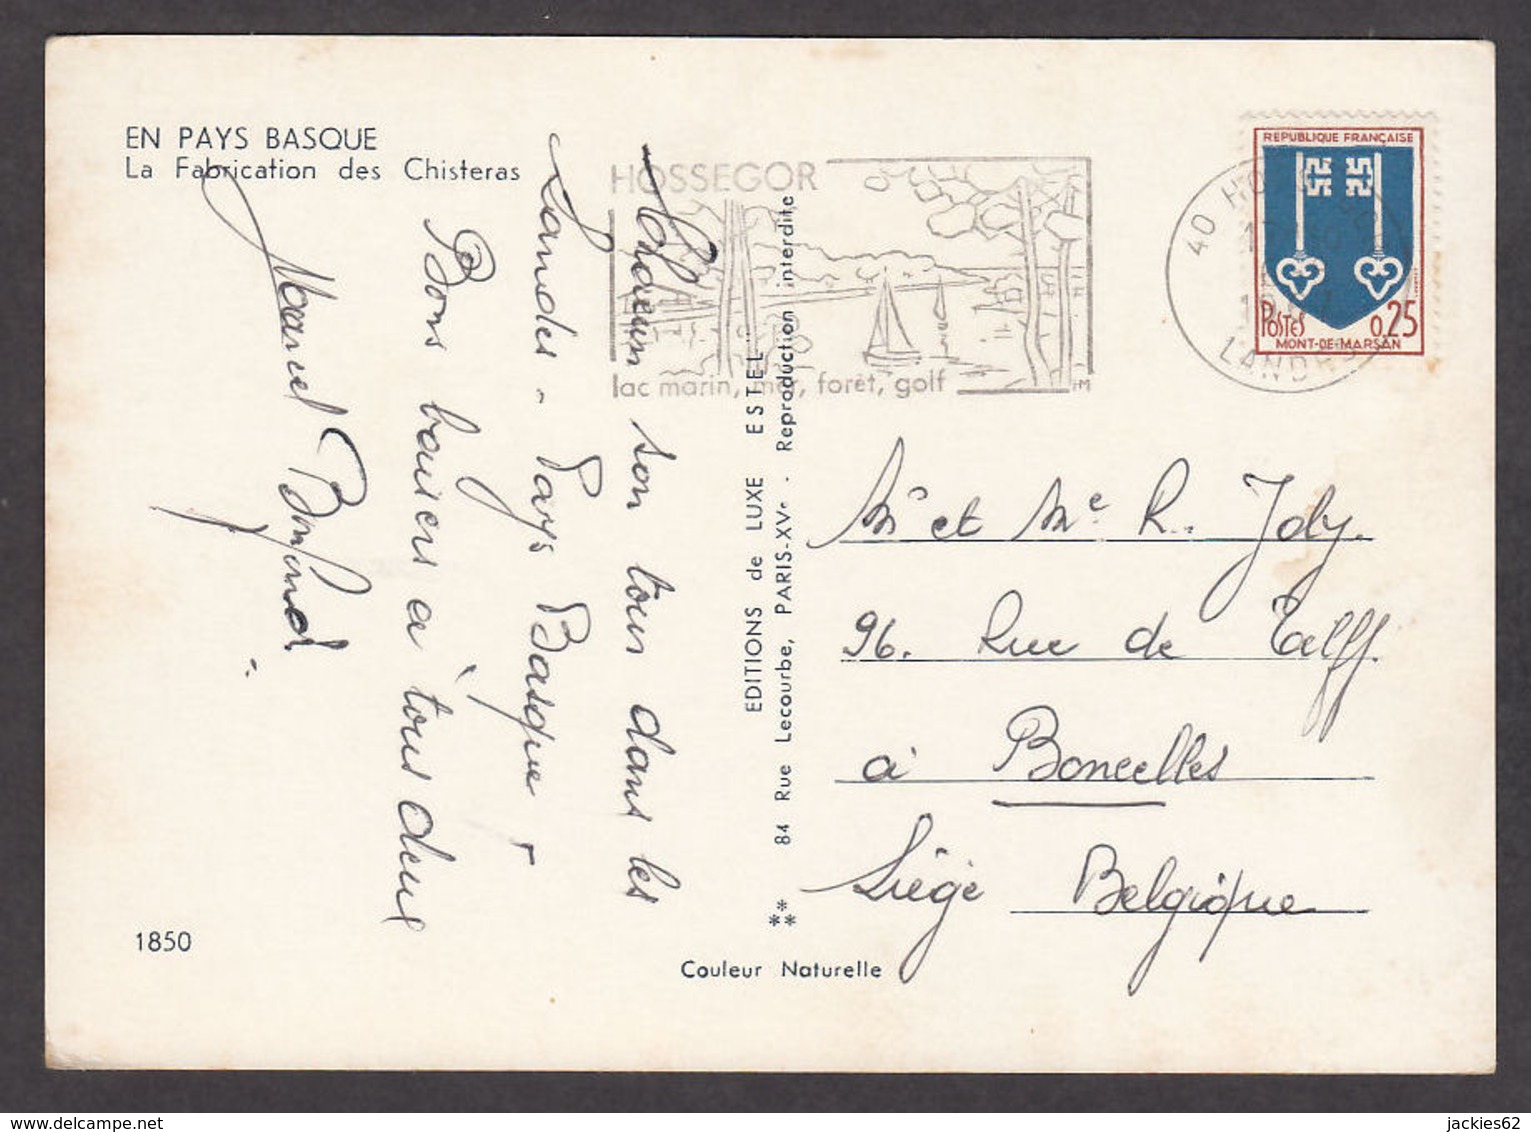 EN PAYS BASQUE
La Fabrication des Chisteras
HOSSEGOR
lac marin, mer, forêt, golf
40
LANDES
REPUBLIQUE FRANÇAISE
POSTES 0.25
MONT-DE-MARSAN
son tour dans les
Landes - Pays Basque
Bons baisers à tous deux
Marcel
EDITIONS de LUXE "ESTEL"
84 Rue Lecourbe, PARIS-XVe - Reproduction interdite
Mr et Me R. Joly.
96. Rue de Tilff.
à Boncelles
Liège Belgique
1850
Couleur Naturelle
jackies62